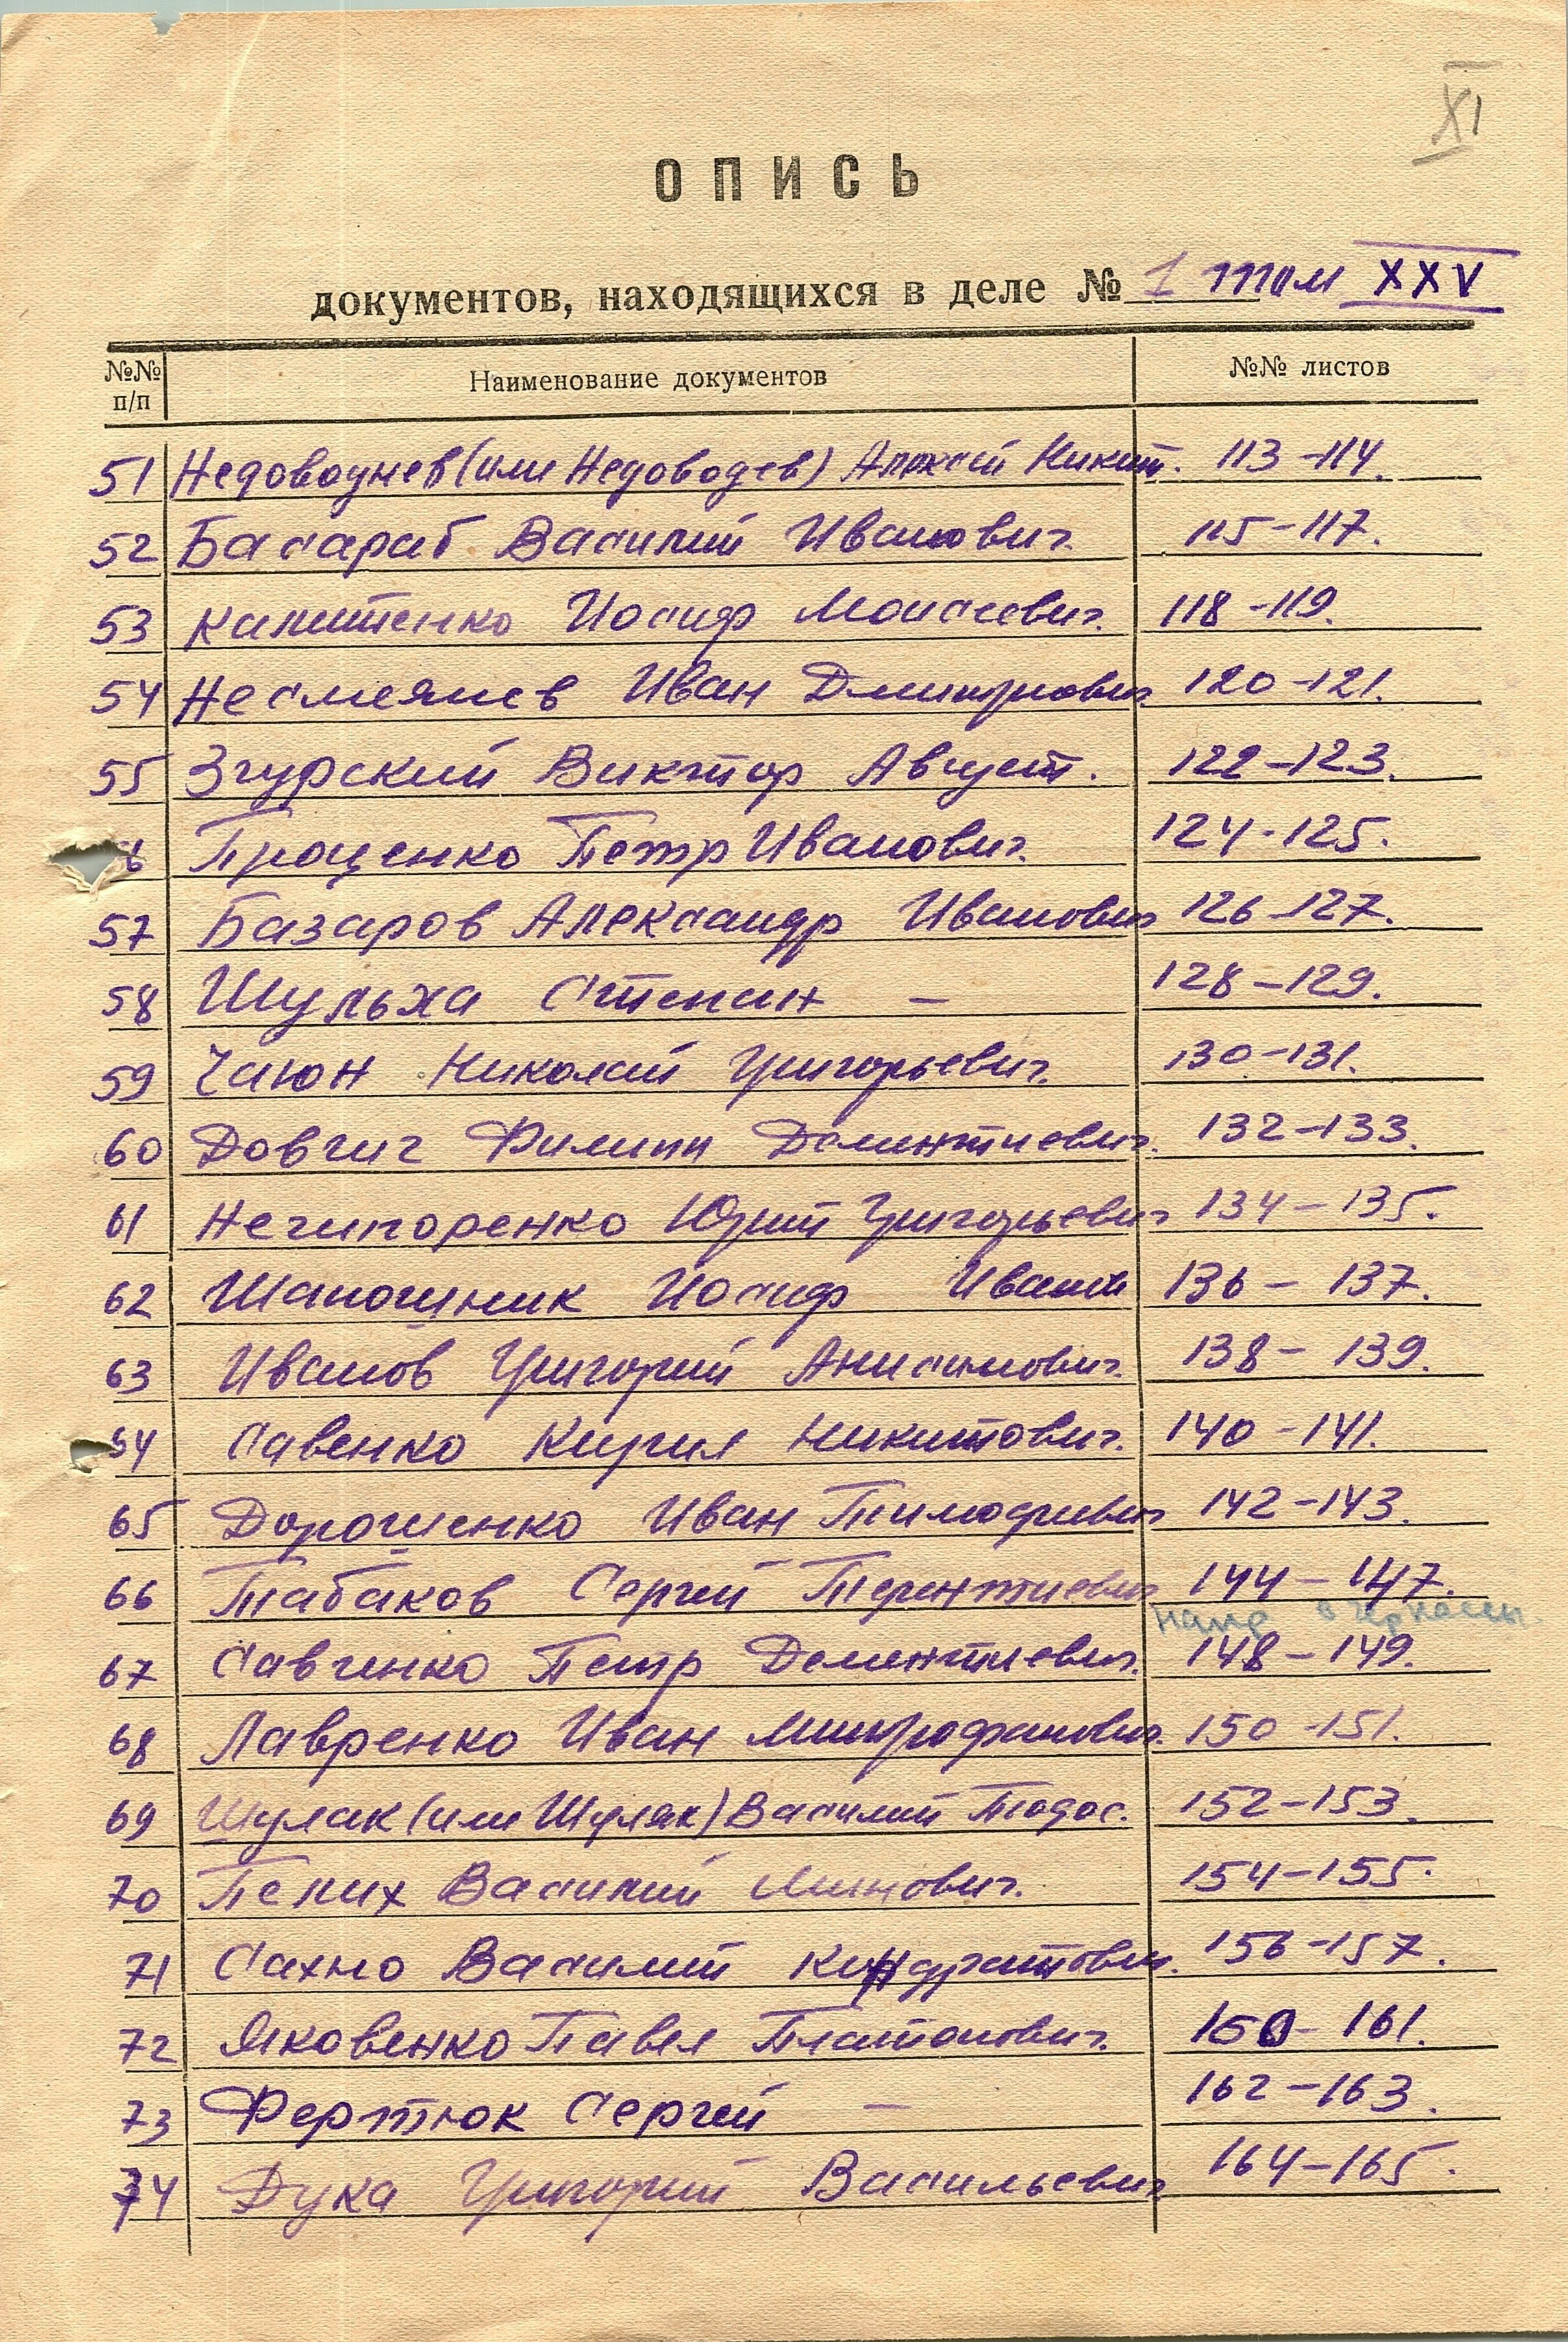 XI
ОПИСЬ
документов, находящихся в деле № 1 том XXV
№№ п/п Наименование документов №№ листов
51 Недоводнев (или Недоводев) Алексей Никит. 113-114.
52 Басараб Василий Иванович. 115-117.
53 Капитенко Иосиф Моисеевич. 118-119.
54 Несмеянев Иван Дмитриович 120-121.
55 Згурский Виктор Август. 122-123.
6 Проценко Петр Иванович. 124-125.
57 Базаров Александр Иванович 126-127.
58 Шульха Степан – 128-129.
59 Чаюн Николай Григорьевич. 130-131.
60 Довгич Филипп Дементиевич. 132-133.
61 Нечипоренко Юрий Григорьевич 134-135.
62 Шапошник Иосиф Иванов 136-137.
63 Иванов Григорий Анисимович. 138-139.
64 Савенко Кирил Никитович. 140-141.
65 Дорошенко Иван Тимофиевич 142-143.
66 Табаков Сергей Терентиевич 144-147.
в Черкассы.
67 Савченко Петр Дементиевич. 148-149.
68 Лавренко Иван Митрофанович. 150-151.
69 Шулак (или Шуляк) Василий Тодос. 152-153.
70 Пелих Василий Минович. 154-155.
71 Сахно Василий Кондратович. 156-157.
72 Яковенко Павел Платонович. 161.
73 Фертюк Сергей – 162-163.
74 Дука Григорий Васильевич 164-165.